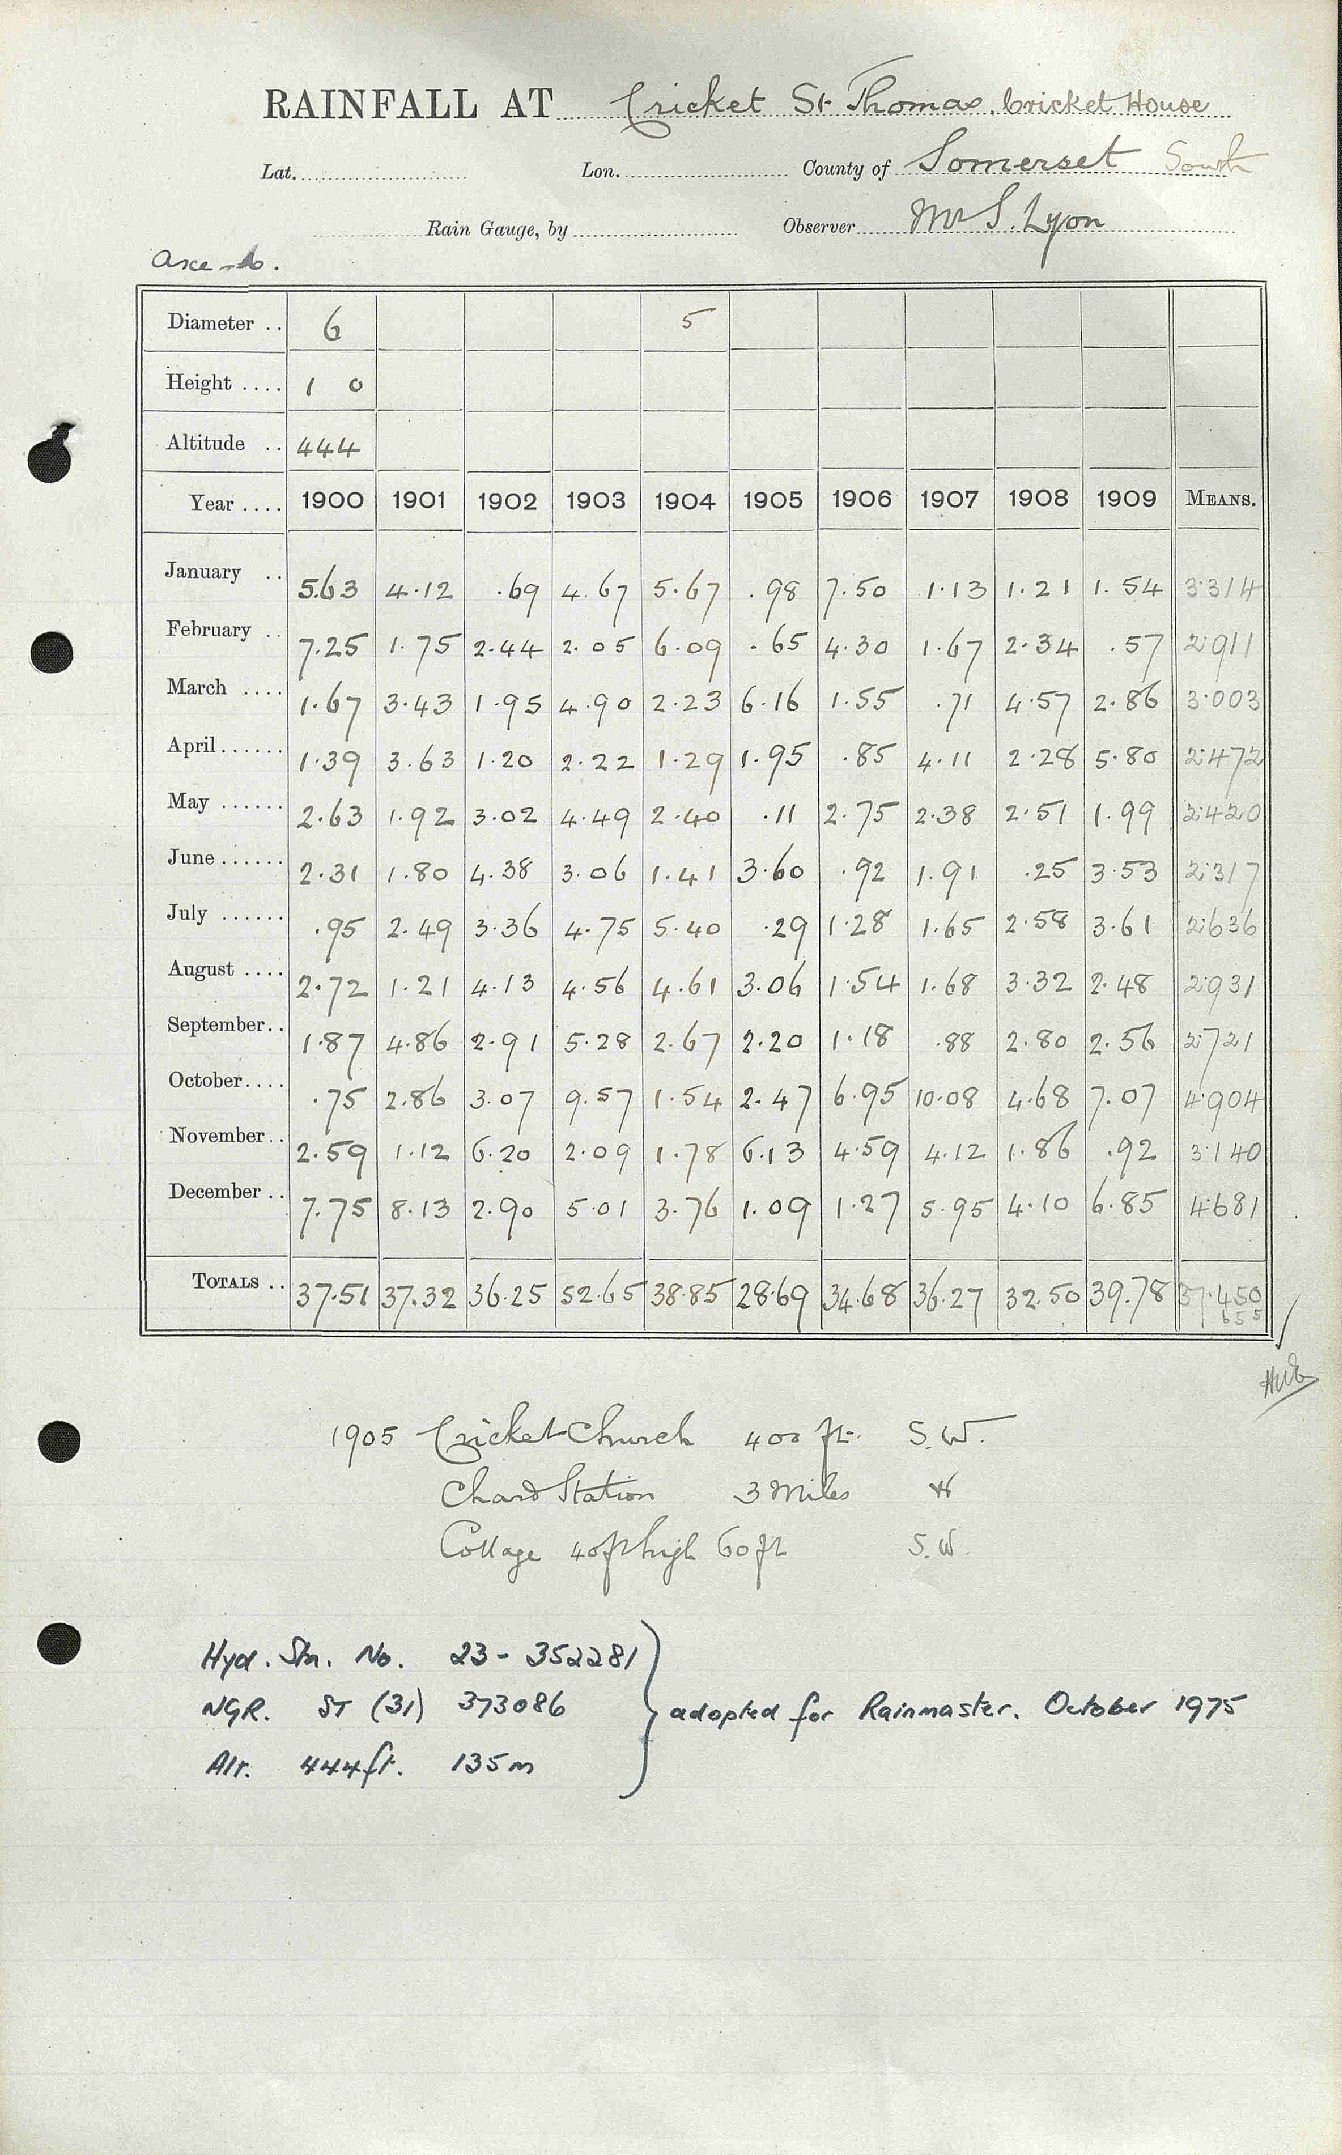 RAINFALL AT Cricket St Thomas. Cricket House
Lat. Lon. County of Somerset South
Rain Gauge, by Observer Mr S. Lyon
Axe
Diameter .. 6 5
Height .... 1 0
Altitude .. 444
Year .... 1900 1901 1902 1903 1904 1905 1906 1907 1908 1909 MEANS.
January .. 5.63 4.12 .69 4.67 5.67 .98 7.50 1.13 1.21 1.54 3.314
February .. 7.25 1.75 2.44 2.05 6.09 .65 4.30 1.67 2.34 .57 2.911
March .... 1.67 3.43 1.95 4.90 2.23 6.16 1.55 .71 4.57 2.86 3.003
April ...... 1.39 3.63 1.20 2.22 1.29 1.95 .85 4.11 2.28 5.80 2.472
May ...... 2.63 1.92 3.02 4.49 2.40 .11 2.75 2.38 2.51 1.99 2.420
June ...... 2.31 1.80 4.38 3.06 1.41 3.60 .92 1.91 .25 3.53 2.317
July ...... .95 2.49 3.36 4.75 5.40 .29 1.28 1.65 2.58 3.61 2.636
August .... 2.72 1.21 4.13 4.56 4.61 3.06 1.54 1.68 3.32 2.48 2.931
September.. 1.87 4.86 2.91 5.28 2.67 2.20 1.18 .88 2.80 2.56 2.721
October.... .75 2.86 3.07 9.57 1.54 2.47 6.95 10.08 4.68 7.07 4.904
November.. 2.59 1.12 6.20 2.09 1.78 6.13 4.59 4.12 1.86 .92 3.140
December .. 7.75 8.13 2.90 5.01 3.76 1.09 1.27 5.95 4.10 6.85 4.681
TOTALS .. 37.51 37.32 36.25 52.65 38.85 28.69 34.68 36.27 32.50 39.78 37.450
655
1905 Cricket Church 400 ft. S.W.
Chard Station 3 Miles W
Cottage 40ft high 60ft S.W.
Hyd. Stn. No. 23-352281
NGR. ST (31) 373086 adopted for Rainmaster. October 1975
Alt. 444ft. 135m